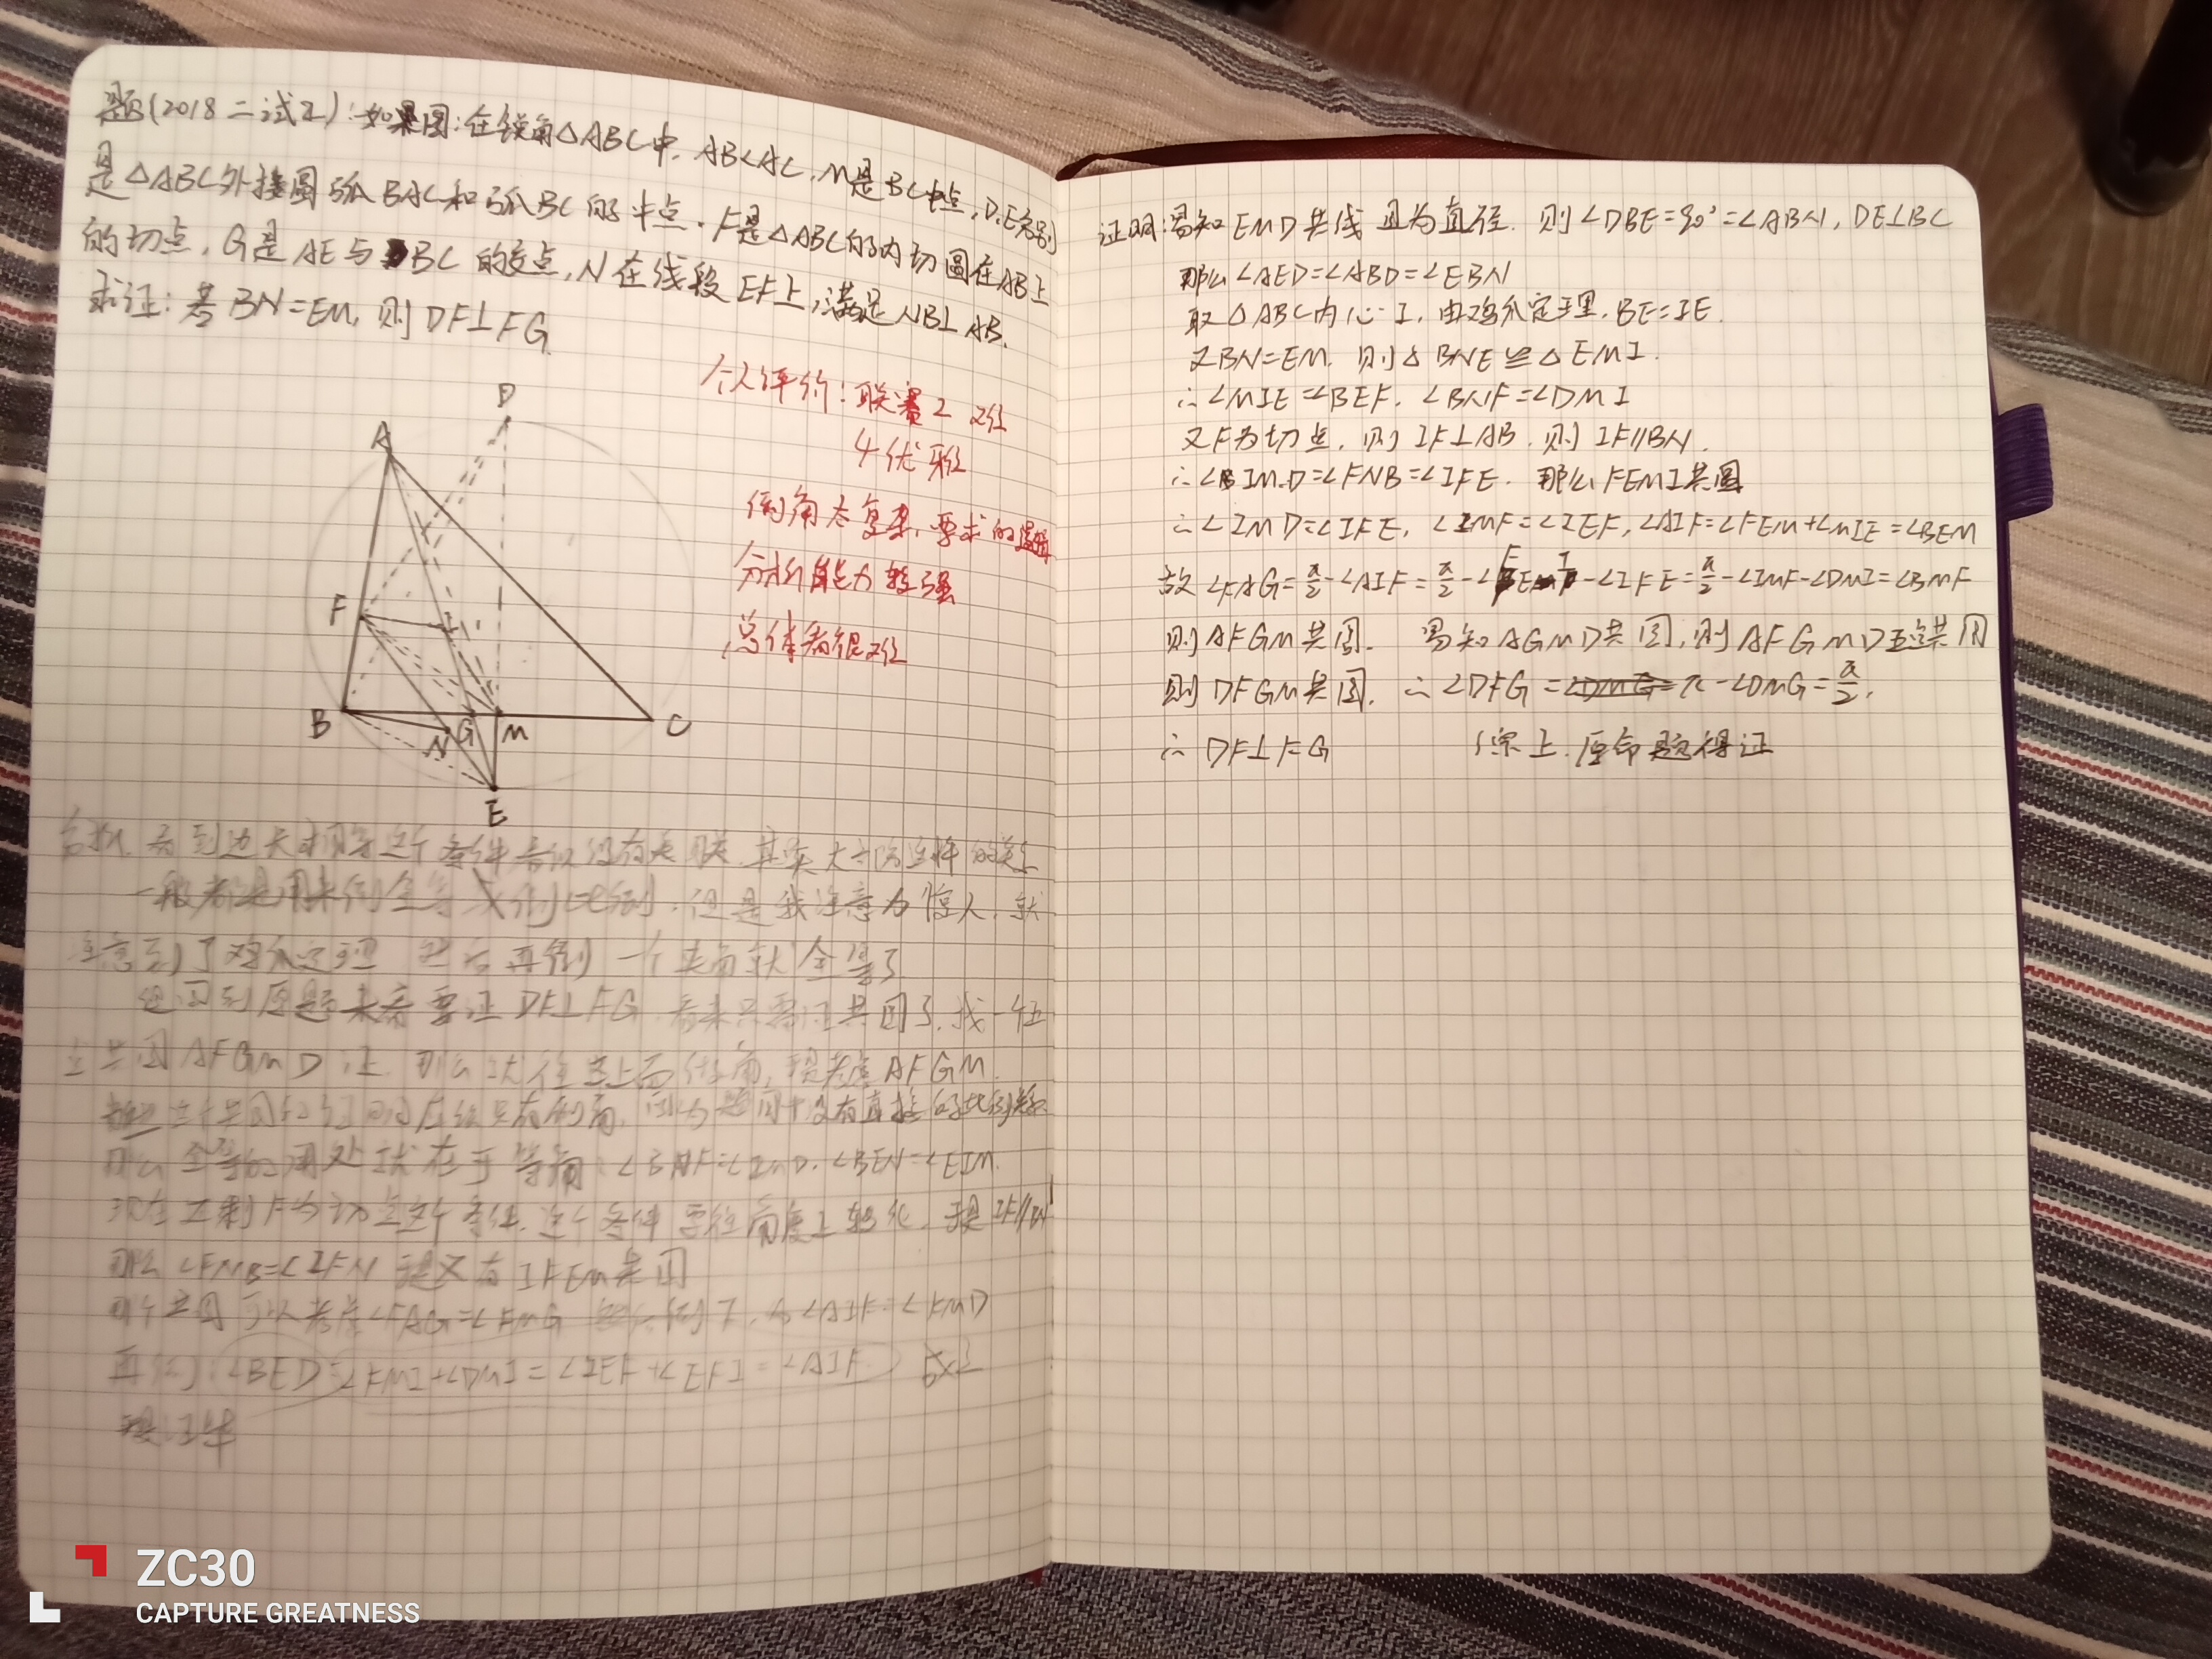 题(2018二试2):如图:在锐角△ABC中,AB<AC,M是BC中点,D,E分别
是△ABC外接圆弧BAC和弧BC的中点.F是△ABC的内切圆在AB上
的切点,G是AE与BC的交点,N在线段EF上,满足NB⊥AB.
求证:若BN=EM,则DF⊥FG.
个人评价:联赛2 难
倒角太复杂,要求的逻辑
分析能力较强
总体看很难
D
A
F
I
B
N
G
M
C
E
台机.看到边长相等这个条件看似没有关联,其实大部分这样的
一般都是用来倒全等或倒比例.但是我注意力惊人,就
注意到了鸡爪定理 然后再倒一个夹角就全等了
但回到原题来看要证DF⊥FG,看来只需证共圆了.找一个五
点共圆AFGMD证.那么就往上面倒角,于是考虑AFGM.
这个共圆的 只有倒角,因为题目中没有直接的比例
那么全等的用处就在于等角:∠BNF=∠IMD.∠BEN=∠EIM.
现在还剩F为切点这个条件.这个条件要往角度上转化.于是IF∥BN
那么∠FNB=∠IFN 于是又有IFEM共圆
那个共圆可以考虑∠FAG=∠FMG ∠AIF=∠FMD
再倒:∠BED=∠FMI+∠DMI=∠IEF+∠EFI=∠AIF
于是证毕
证明:易知EMD共线且为直径.则∠DBE=90°=∠ABN,DE⊥BC
那么∠AED=∠ABD=∠EBN
取△ABC内心I,由鸡爪定理,BE=IE.
又BN=EM.则△BNE≌△EMI.
∴∠MIE=∠BEF.∠BNF=∠DMI
又F为切点,则IF⊥AB.则IF∥BN.
∴∠IMD=∠FNB=∠IFE.那么FEMI共圆
∴∠IMD=∠IFE,∠IMF=∠IEF,∠AIF=∠FEM+∠MIE=∠BEM
故∠FAG=π/2-∠AIF=π/2-∠FEI-∠IFE=π/2-∠IMF-∠DMI=∠BMF
则AFGM共圆. 易知AGMD共圆,则AFGMD五点共圆
则DFGM共圆. ∴∠DFG=π-∠DMG=π/2.
∴DF⊥FG 综上.原命题得证
ZC30
CAPTURE GREATNESS